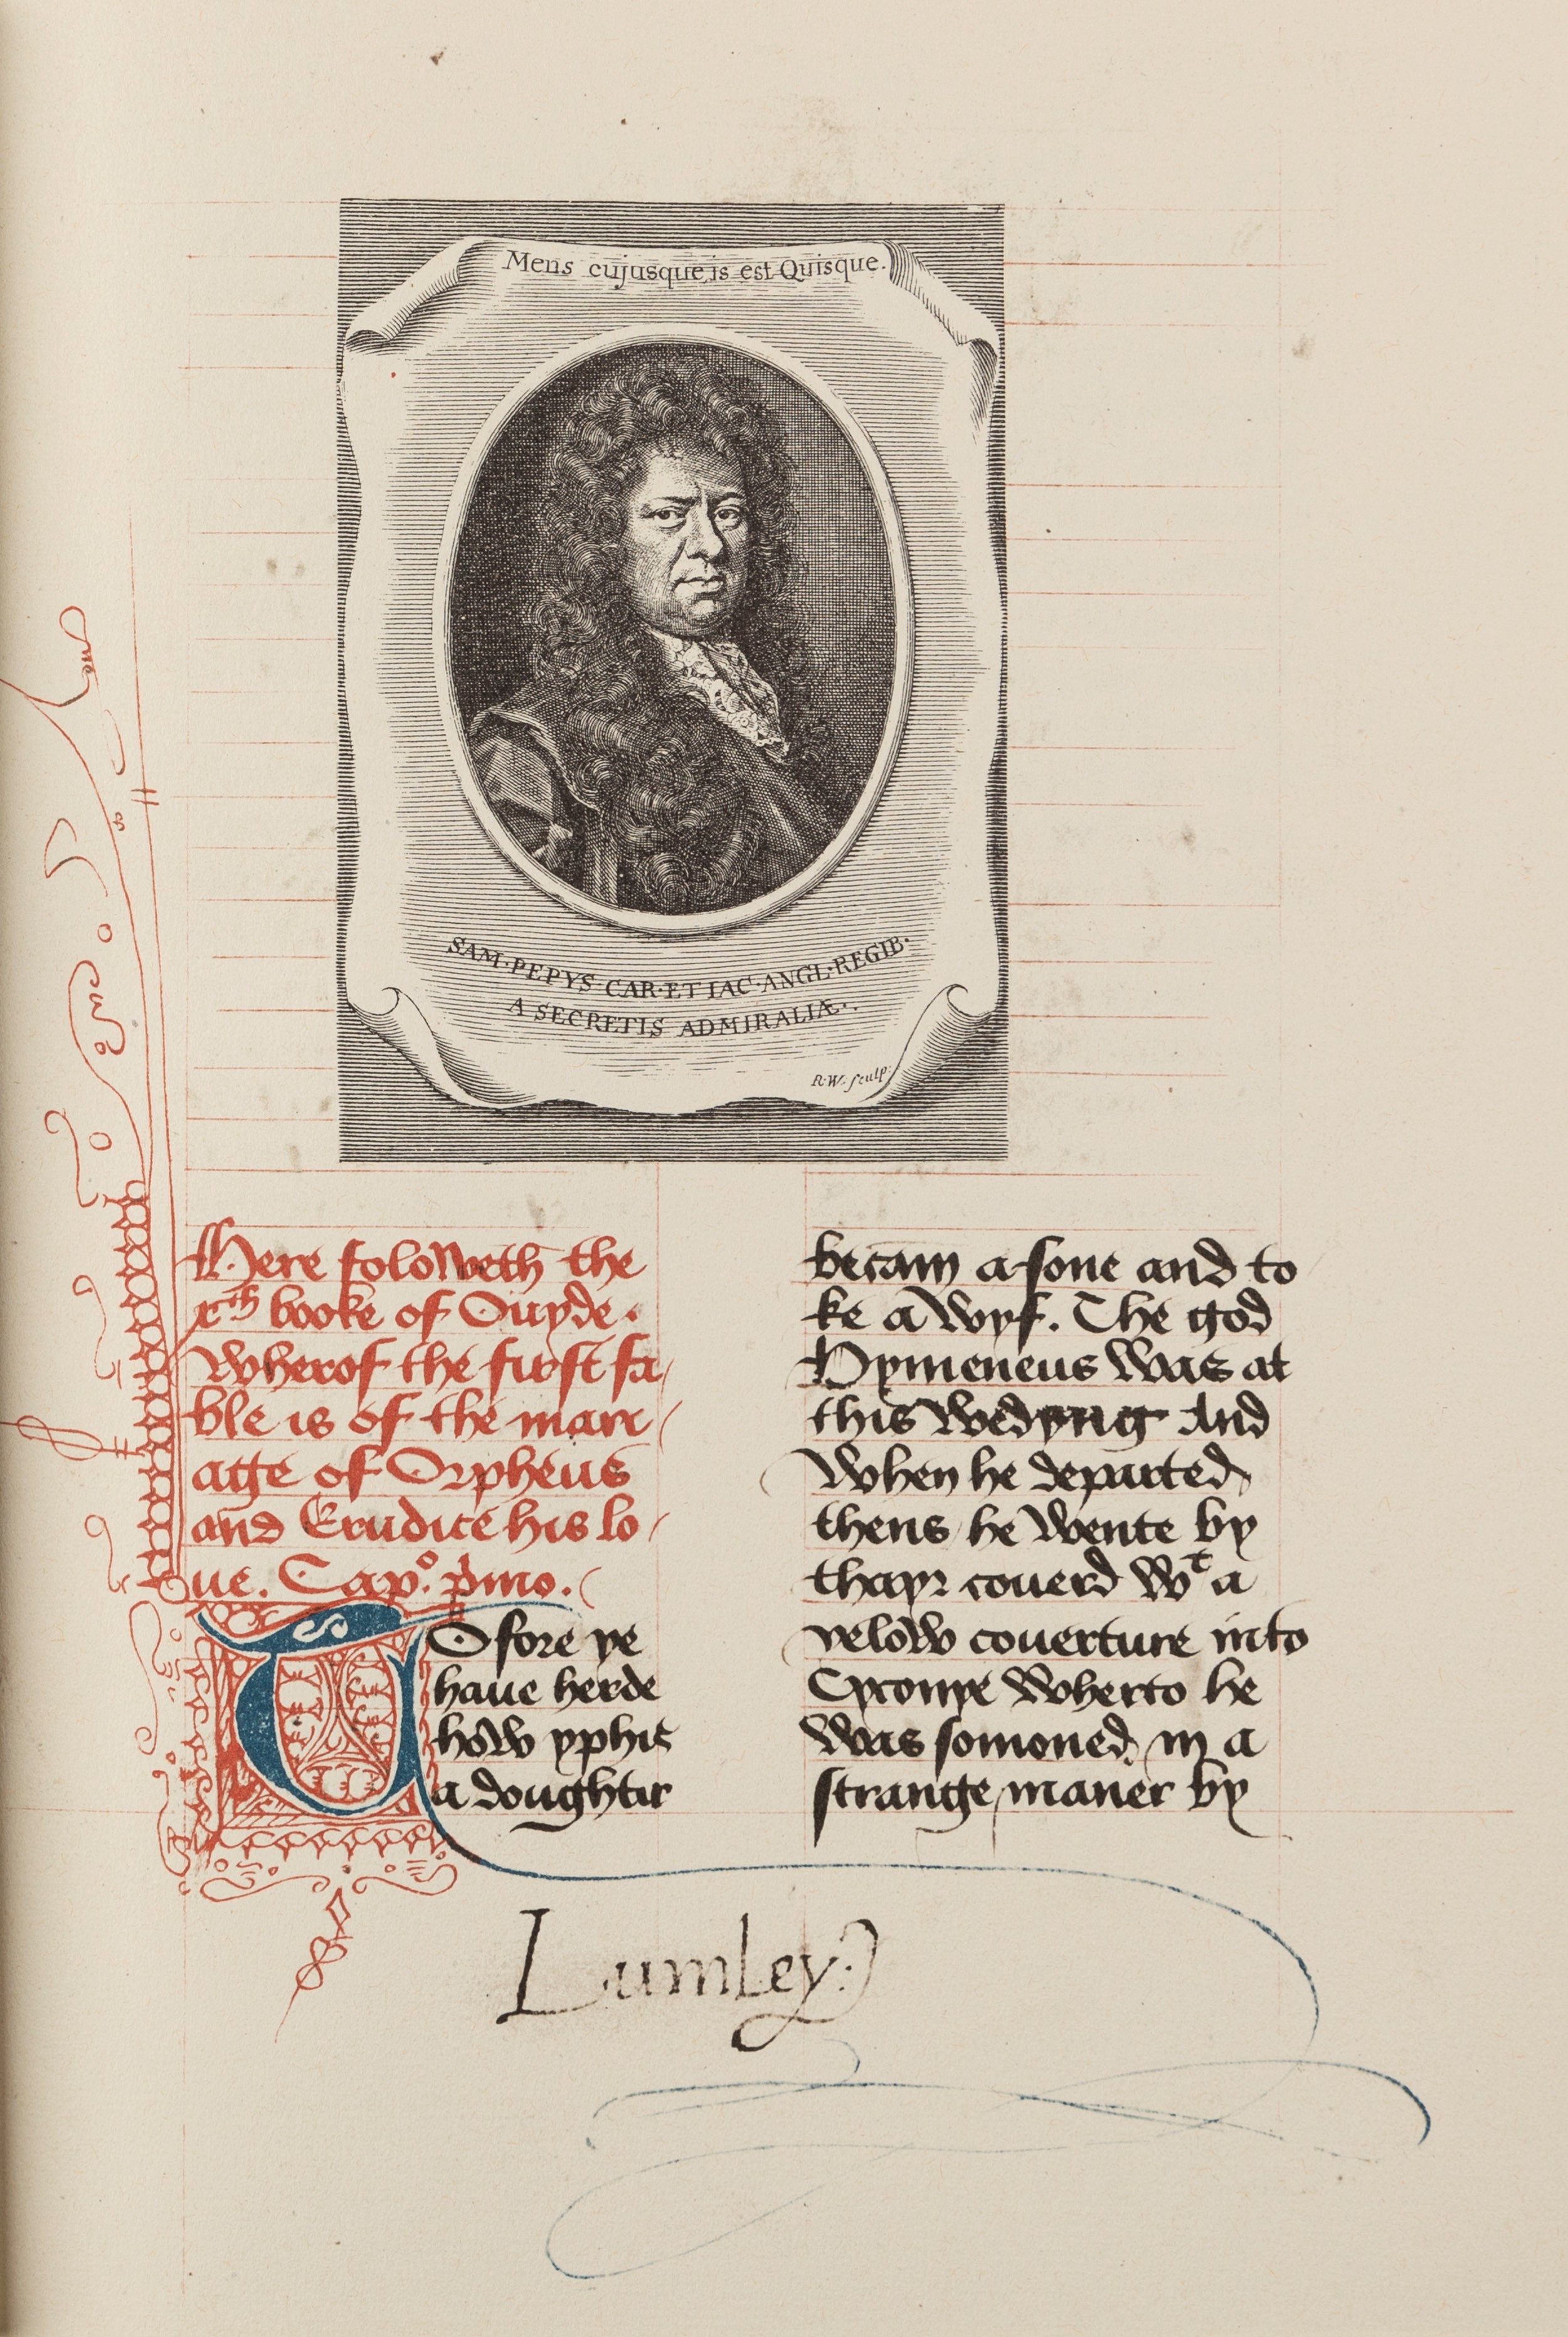 Mens cujusque is est Quisque.
SAM·PEPYS·CAR·ET IAC·ANGL·REGIB·
A SECRETIS ADMIRALIÆ·.
R·W· sculp:
Here foloweth the
xth booke of Ouyde.
Wherof the first fa/
ble is of the mari/
age of Orpheus
and Erudice his lo/
ue. Capº. pmo.
TOfore ye
haue herde
how yphis
a doughtir
becam a sone and to
ke a wyf. The god
Hymeneus was at
this wedyng And
When he departed
thens he wente by
thayr couerd Wt a
yelow couerture into
Cyconye Wherto he
was somoned in a
strange maner by
Lumley: